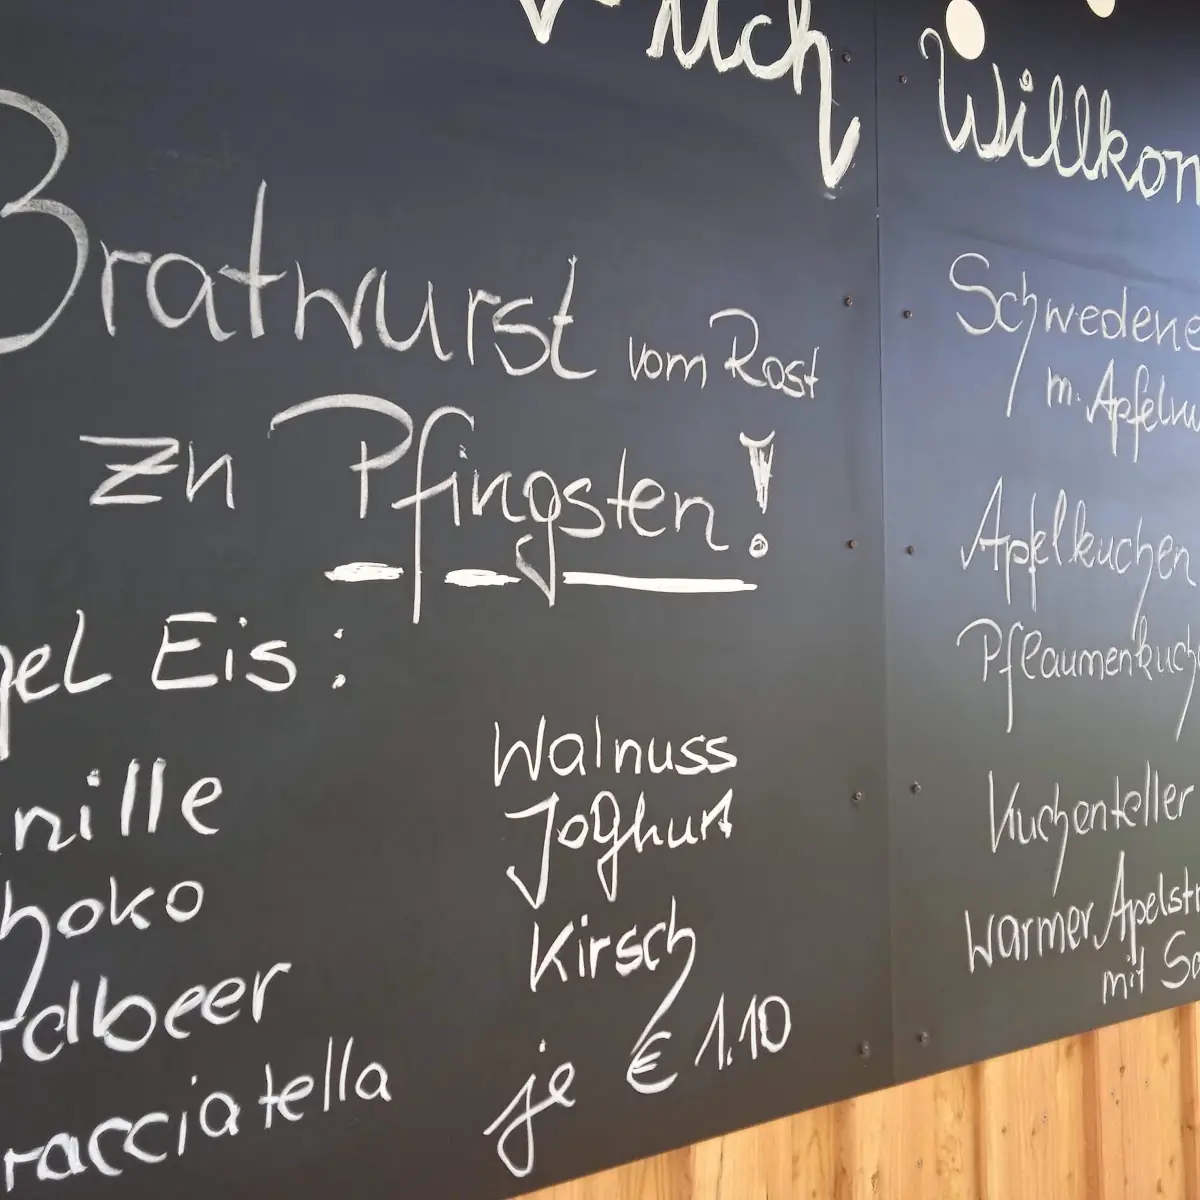 lich Willkom
Bratwurst vom Rost
zu Pfingsten!
gel Eis:
nille
hoko
rdbeer
racciatella
Walnuss
Joghurt
Kirsch
je € 1.10
Schwedene
m. Apfelmu
Apfelkuchen
Pflaumenkuche
Kuchenteller
Warmer Apelstr
mit Sa